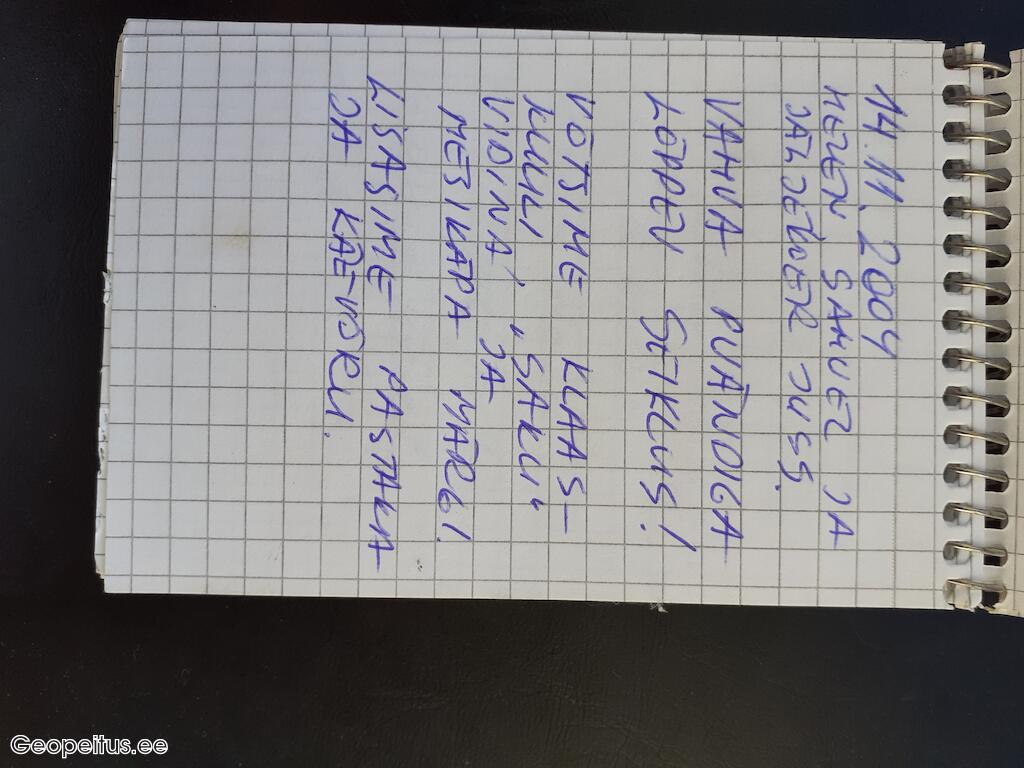 14.11.2004
HELEN SAMUEL JA
JAN JETWER JUSS.
VAHVA PUÄNDIGA
LÖPPEN SEIKLUS!
VÕTSIME KLAAS-
KUULI, "SAKU"
VIDINA JA
MESIKÄPA MÄRGI.
LISASIME PASTAKA
JA KÄEVÕRU.
Geopeitus.ee